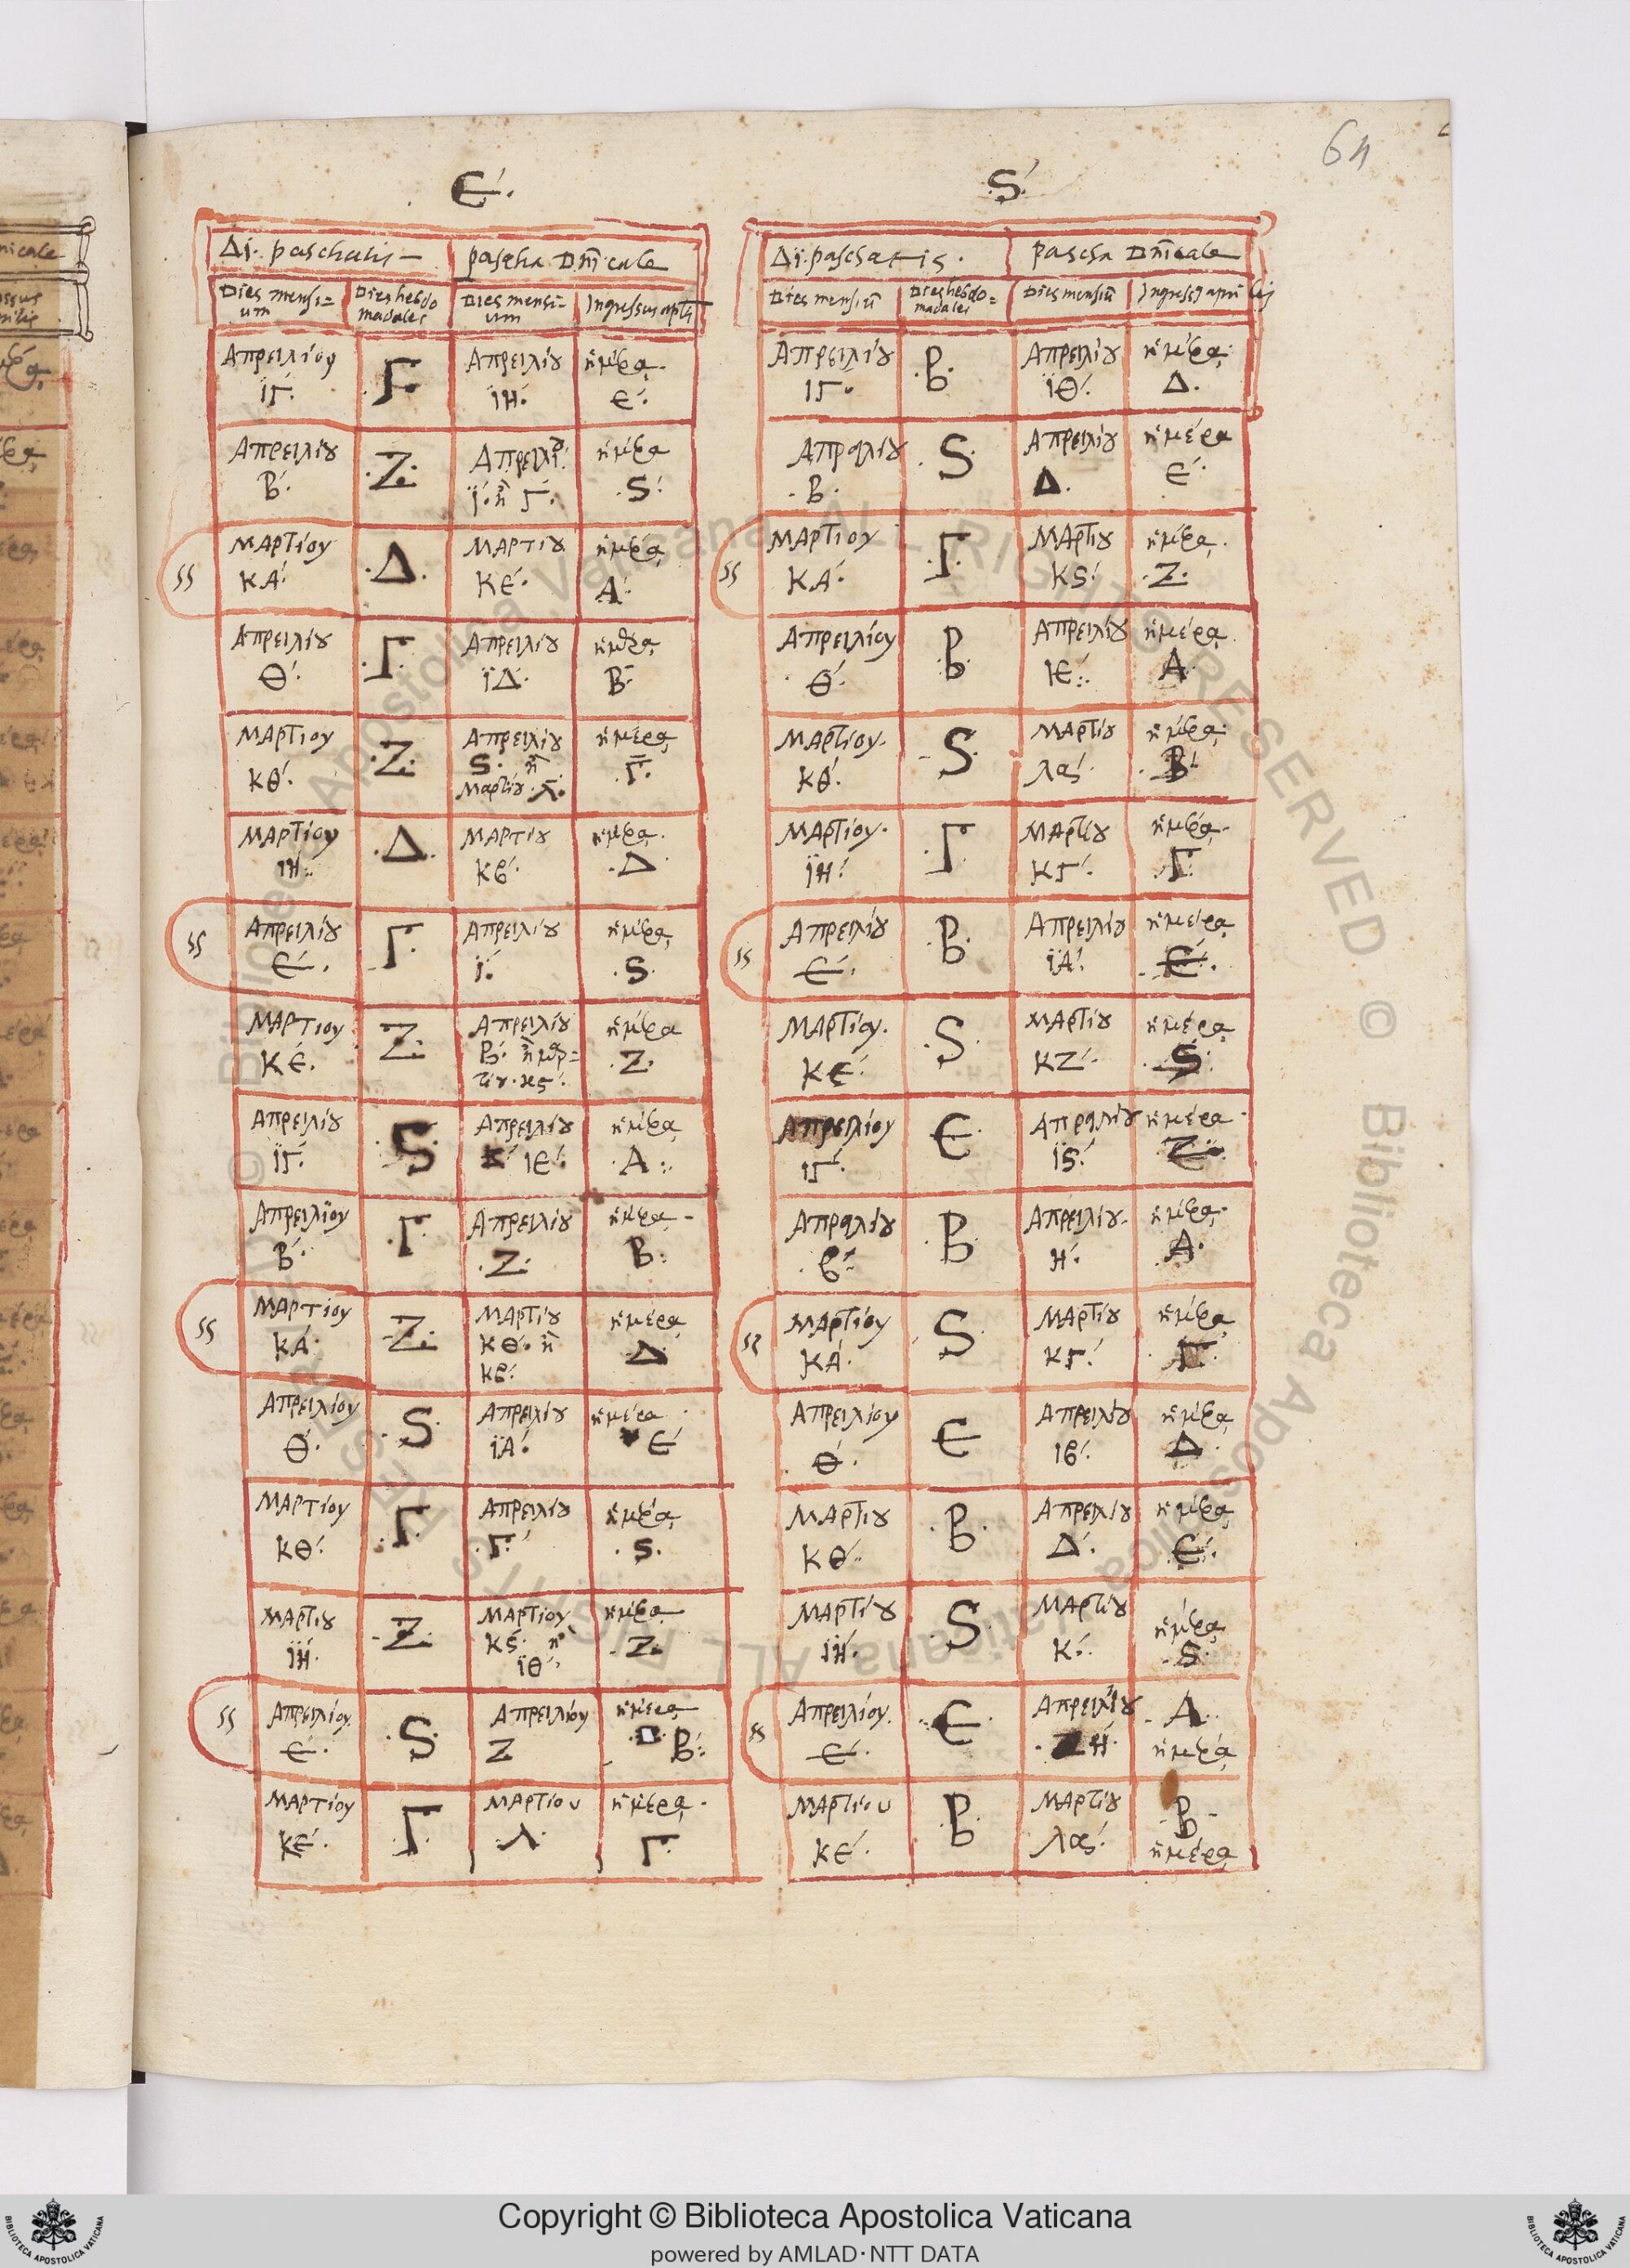 64
Є́.
Δι. paschalis
pascha Dn̄icale
Dies mensi=
um
Dies hebdo
madales
Dies mensi=
um
Ingressus aplis
Απρειλίου
ΙΓ.
Γ.
Απρειλίȣ
ΙΗ.
ἡμέρα.
Є.
Απρειλίȣ
Β.
.Ζ.
Απρειλί
Ι. ἢ Γ.
ἡμέρα
.S.
ss
ΜΑρΤίου
ΚΑ.
.Δ.
ΜΑρΤίȣ
ΚЄ.
ἡμέρα
Α.
Απρειλίȣ
Θ.
.Γ.
Απρειλίȣ
ΙΔ.
ἡμέρα
Β.
ΜΑρΤίου
ΚΘ.
.Ζ.
Απρειλίȣ
S. ἢ
Μαρτίȣ . λ.
ἡμέρα
.Γ.
ΜΑρΤίου
ΙΗ.
.Δ.
ΜΑρΤίȣ
Κβ.
ἡμέρα.
.Δ.
ss
Απρειλίȣ
Є.
Γ.
Απρειλίȣ
Ι.
ἡμέρα
.S.
ΜΑρΤίου
ΚЄ.
Ζ.
Απρειλίȣ
Β. ἢ μαρ=
τίȣ. κς.
ἡμέρα
.Ζ.
Απρειλίȣ
ΙΓ.
S.
Απρειλίȣ
ΙЄ.
ἡμέρα
.Α.
Απρειλίου
Β.
.Γ.
Απρειλίȣ
.Ζ.
ἡμέρα
Β.
ss
ΜΑρΤίου
ΚΑ.
.Ζ.
ΜΑρΤίȣ
ΚΘ. ἢ
κβ.
ἡμέρα
Δ
Απρειλίου
Θ.
.S.
Απρειλίȣ
ΙΑ.
ἡμέρα
Є
ΜΑρΤίου
ΚΘ.
.Γ.
Απρειλίȣ
.Γ.
ἡμέρα
.S.
ΜΑρΤίȣ
ΙΗ.
.Ζ.
ΜΑρΤίου
Κς. ἢ
ΙΘ.
ἡμέρα
.Ζ.
ss
Απρειλίου.
Є.
.S.
Απρειλίου
Ζ
ἡμέρα
Β.
ΜΑρΤίου
ΚЄ.
.Γ.
ΜΑρΤίου
.λ.
ἡμέρα.
Γ.
.S.
Δι. paschatis.
pascha Dn̄icale
Dies mensiū
Dies hebdo=
madales
Dies mensiū
Ingress9 aprilis
Απρειλίȣ
ΙΓ.
.Β.
Απρειλίȣ
ΙΘ.
ἡμέρα
Δ.
Απρειλίȣ
.Β.
.S.
Απρειλίȣ
Δ.
ἡμέρα
Є.
ss
ΜΑρΤίου
ΚΑ.
.Γ.
ΜΑρΤίȣ
ΚS.
ἡμέρα.
.Ζ.
Απρειλίου
.Θ.
.Β.
Απρειλίȣ
ΙЄ.
ἡμέρα.
Α.
ΜΑρΤίου.
ΚΘ.
.S.
ΜΑρΤίȣ
λας.
ἡμέρα
.Β.
ΜΑρΤίου.
ΙΗ.
.Γ.
ΜΑρΤίȣ
ΚΓ.
ἡμέρα.
.Γ.
ss
Απρειλίȣ
Є.
.Β.
Απρειλίȣ
ΙΑ.
ἡμέρα
.Є.
ΜΑρΤίου.
ΚЄ.
.S.
ΜΑρΤίȣ
ΚΖ.
ἡμέρα
.S.
Απρειλίου
ΙΓ.
Є.
Απρειλίȣ
ΙS.
ἡμέρα
Ζ.
Απρειλίȣ
.β.
.Β.
Απρειλίȣ.
Η.
ἡμέρα
.Α.
ss
ΜΑρΤίου
ΚΑ.
.S.
ΜΑρΤίȣ
ΚΓ.
ἡμέρα
.Γ.
Απρειλίου
.Θ.
Є
Απρειλίȣ
Ιβ.
ἡμέρα
Δ.
ΜΑρΤίȣ
ΚΘ.
.Β.
Απρειλίȣ
Δ.
ἡμέρα
.Є.
ΜΑρΤίȣ
ΙΗ.
.S.
ΜΑρΤίȣ
Κ.
ἡμέρα
.S.
ss
Απρειλίου.
Є.
.Є.
Απρειλίȣ
Η.
.Α.
ἡμέρα
ΜΑρΤίου
ΚЄ.
.Β.
ΜΑρΤίȣ
λας.
.Β.
ἡμέρα
© Biblioteca Apostolica Vaticana ALL RIGHTS RESERVED © Biblioteca Apostolica Vaticana ALL RIGHTS RESERVED
Copyright © Biblioteca Apostolica Vaticana
powered by AMLAD·NTT DATA
BIBLIOTECA APOSTOLICA VATICANA
BIBLIOTECA APOSTOLICA VATICANA